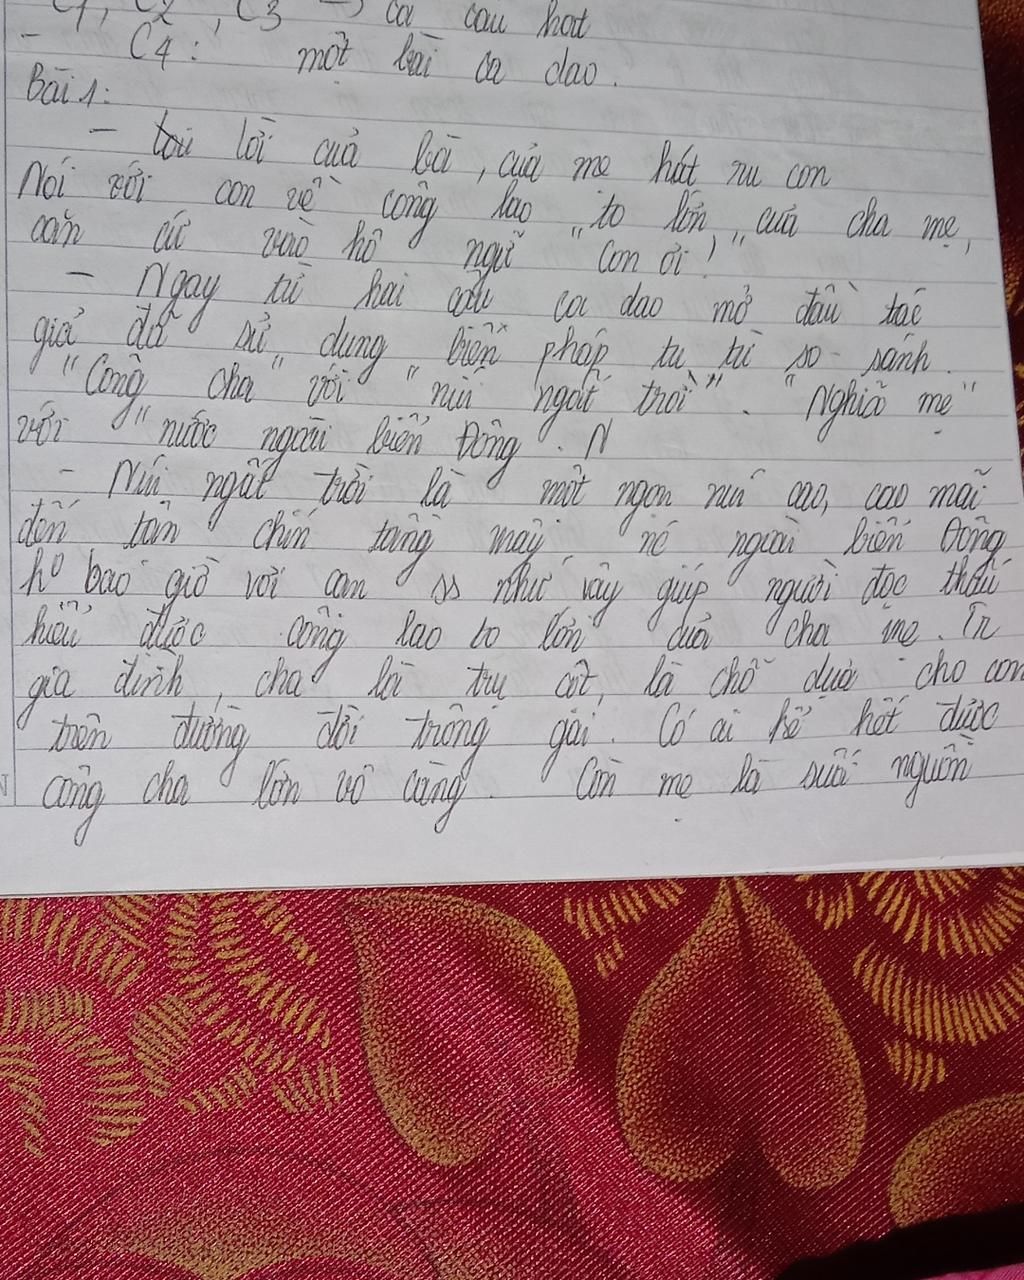 C1, C2, C3 → Ca câu hát
- C4: một bài ca dao.
Bài 1:
- lời của bà, của mẹ hát ru con
Nói với con về công lao to lớn của cha mẹ,
căn cứ vào hô ngữ "Con ơi!"
- Ngay từ hai câu ca dao mở đầu tác
giả đã sử dụng biện pháp tu từ so sánh.
"Công cha" với "núi ngất trời". "Nghĩa mẹ"
với "nước ngoài biển Đông. N
- Núi ngất trời là một ngọn núi cao, cao mãi
đến tận chín tầng mây. nc ngoài biển Đông
ko bao giờ vơi cạn ss như vậy giúp người đọc thấu
hiểu được công lao to lớn của cha mẹ. Tr
gia đình, cha là trụ cột, là chỗ dựa cho con
trên đường đời trông gai. Có ai kể hết được
công cha lớn vô cùng. Còn mẹ là suối nguồn